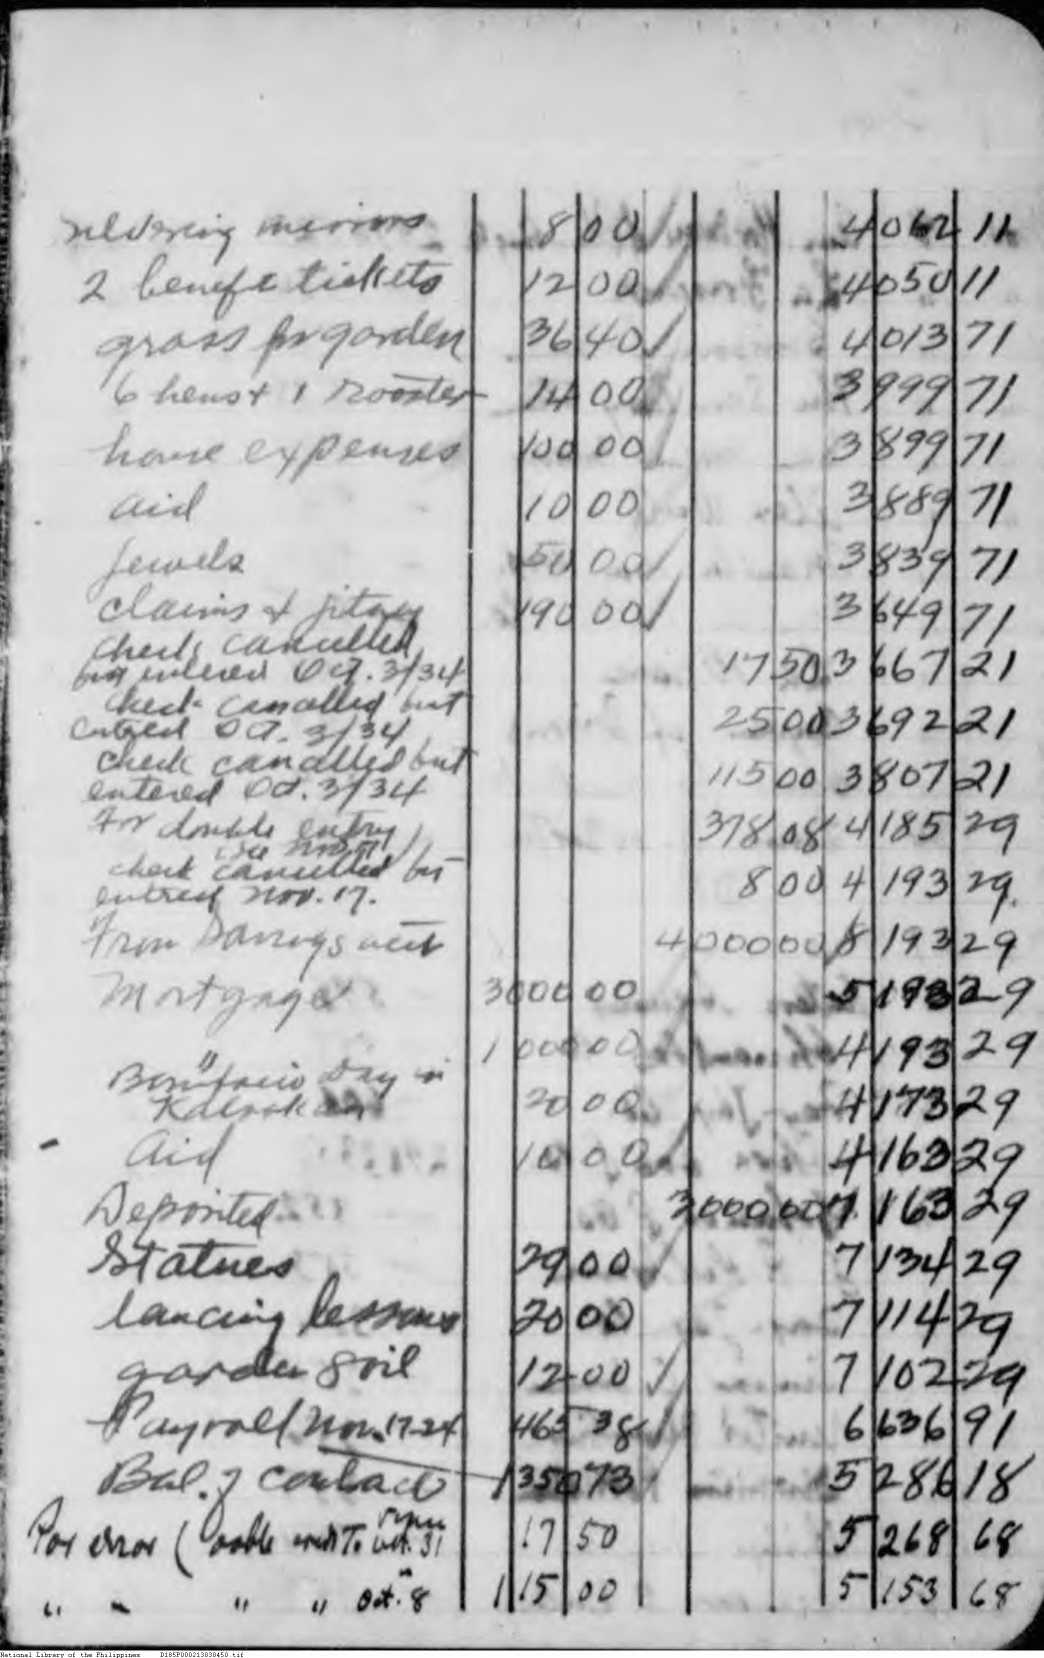 mirrors 8 00 4062 11
2 benefit tickets 12 00 4050 11
grass for garden 36 40 4013 71
6 hens + 1 rooster 14 00 3999 71
house expenses 100 00 3899 71
aid 10 00 3889 71
Jewels 50 00 3839 71
Claims & jitney 190 00 3649 71
Check cancelled
but entered Oct. 3/34 17 50 3667 21
Check cancelled but
entered Oct. 3/34 25 00 3692 21
Check cancelled but
entered Oct. 3/34 115 00 3807 21
For double entry
378 08 4185 29
check cancelled but
entered Nov. 17. 8 00 4193 29.
From Savings acct 4000 00 8193 29
Mortgage 3000 00 5193 29
" 1000 00 4193 29
Bonifacio Day in
20 00 4173 29
Aid 10 00 4163 29
Deposited 3000 00 7163 29
Statues 29 00 7134 29
lessons 20 00 7114 29
garden soil 12 00 7102 29
Payroll Nov. 17-24 465 38 6636 91
Bal. of contract 1350 73 5286 18
For error ( Oct. 31 17 50 5268 68
" " " " Oct. 8 115 00 5153 68
National Library of the Philippines D185P000213838450.tif